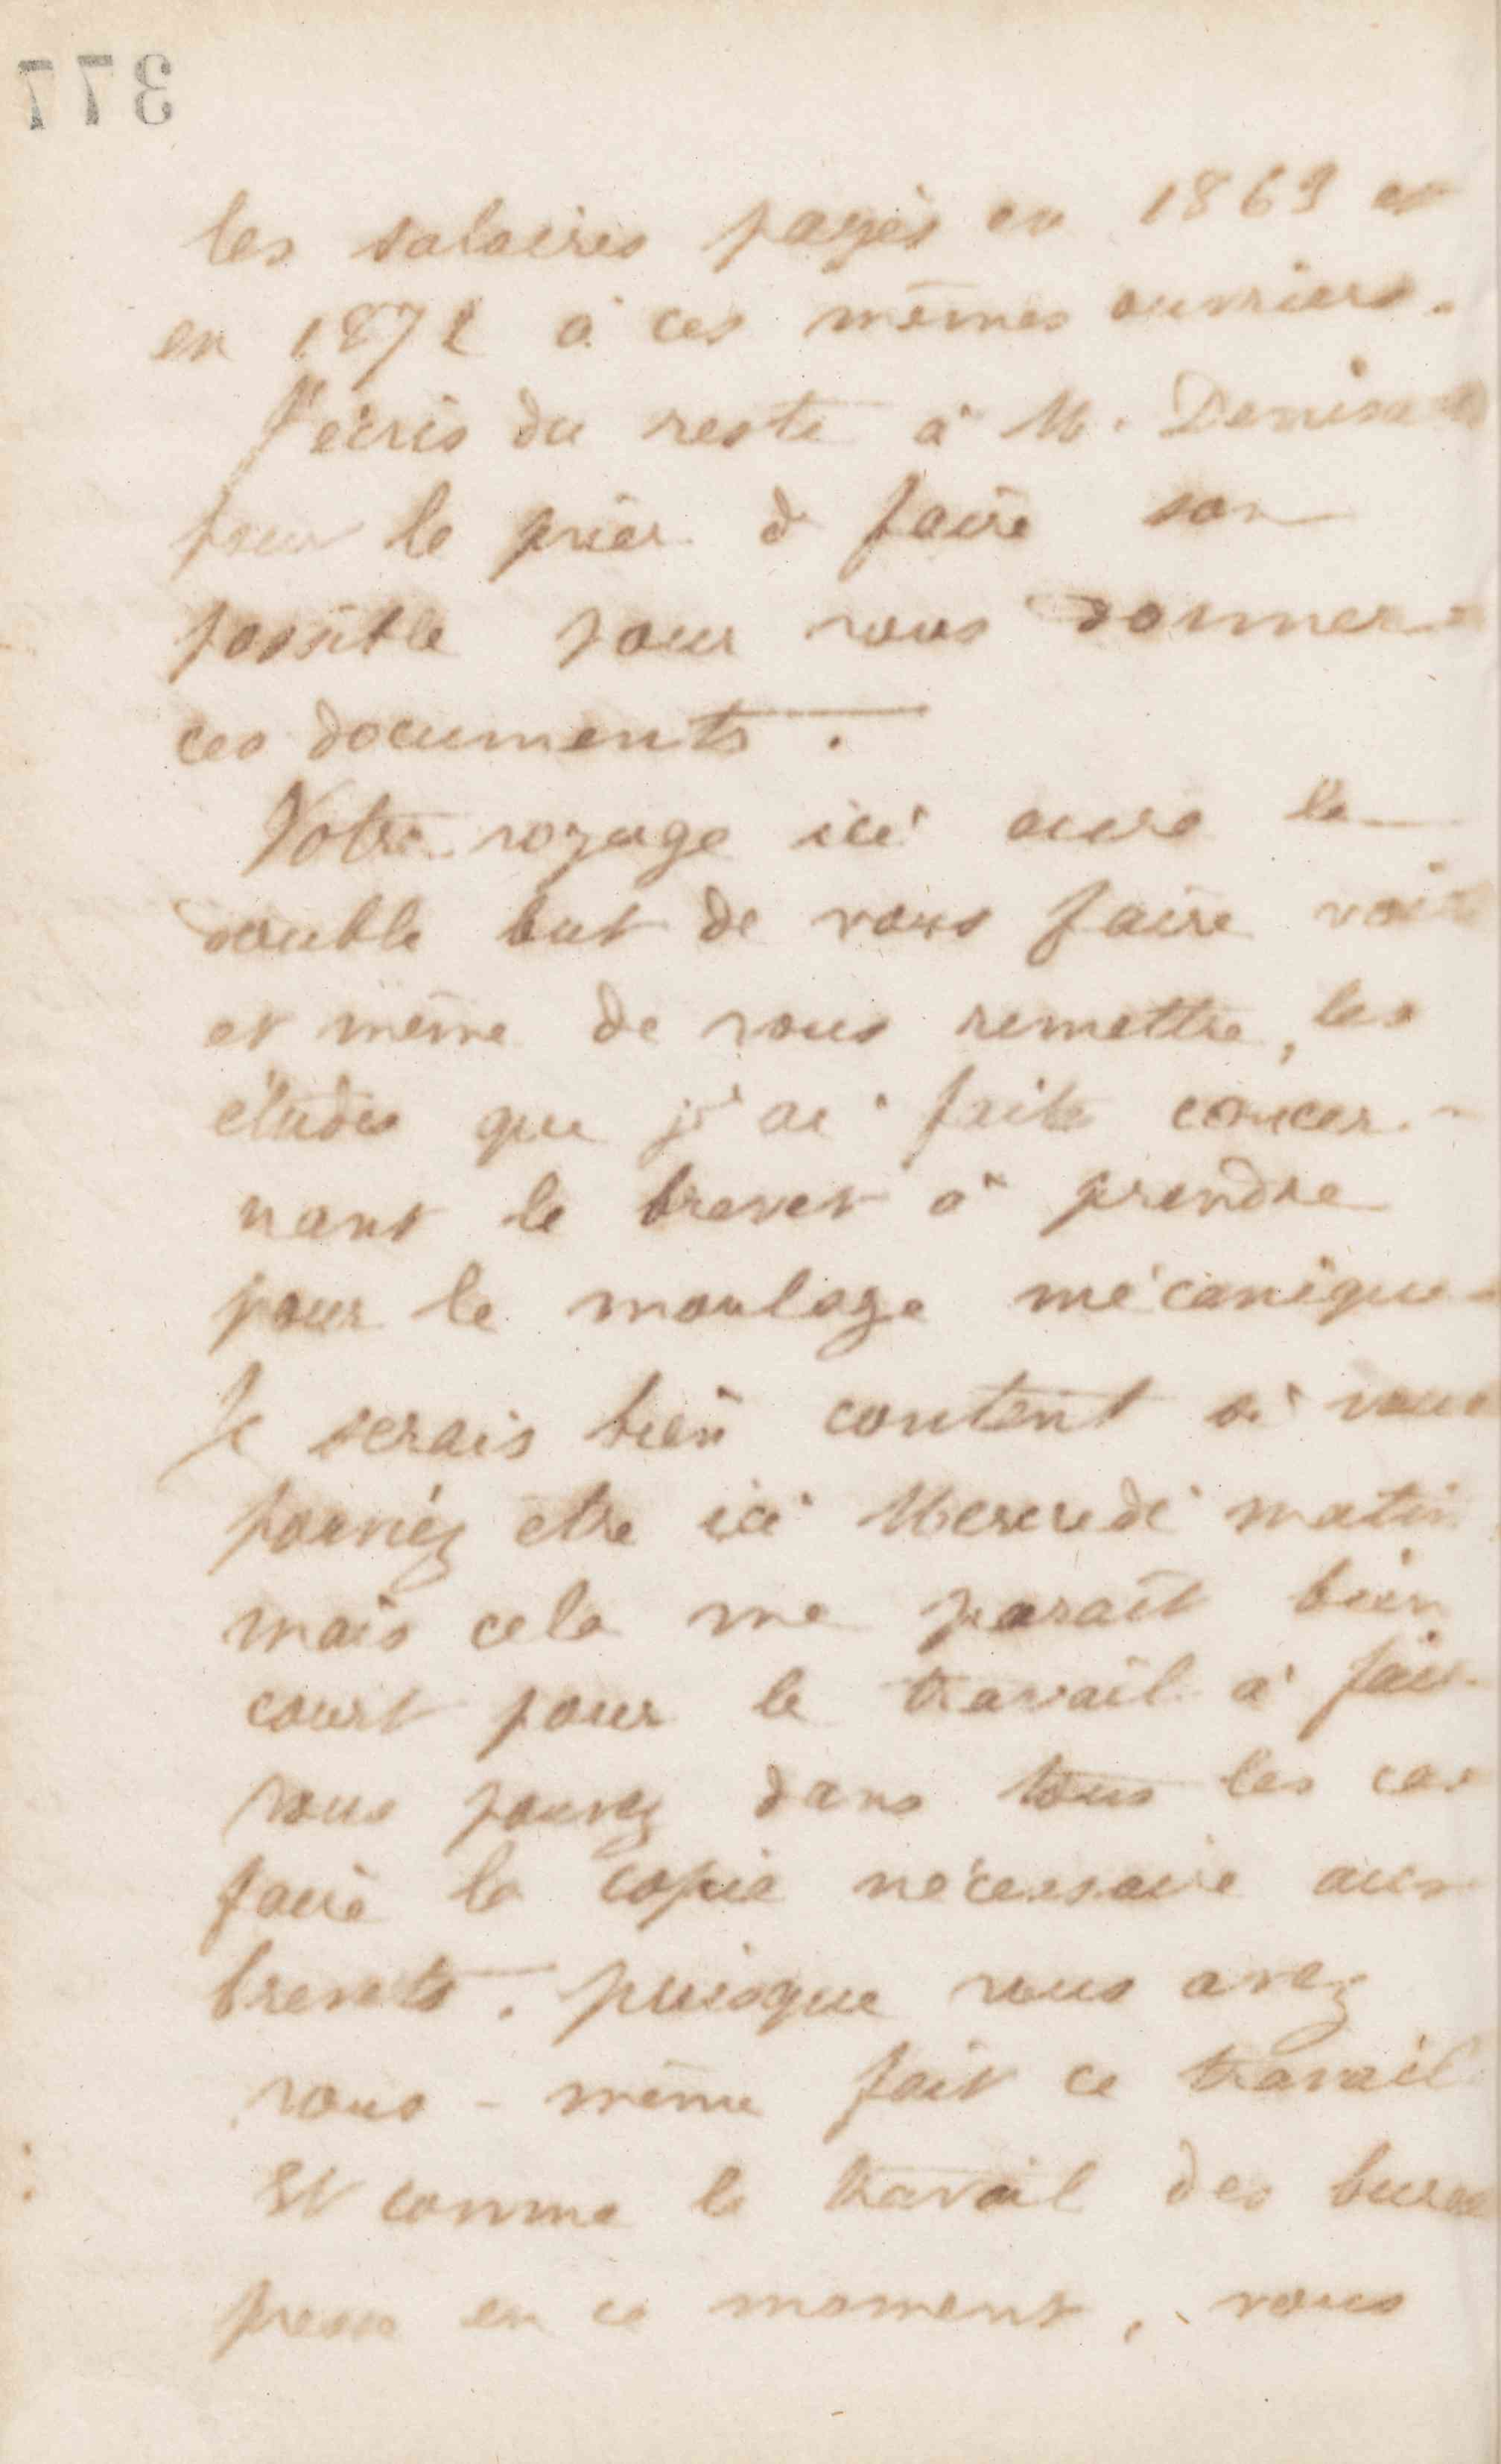 377
les salaires payés en 1869 et
en 1872 à ces mêmes ouvriers.
J'écris du reste à M.
pour le prier de faire son
possible pour vous donner
ces documents.
Votre voyage ici aura le
double but de vous faire voir
et même de vous remettre, les
études que j'ai faites concer-
nant le brevet à prendre
pour le moulage mécanique
Je serais bien content si vous
pouviez être ici Mercredi matin
mais cela me paraît bien
court pour le travail à faire
vous pouvez dans tous les cas
faire la copie nécessaire aux
brevets. puisque vous avez
vous-même fait ce travail
Et comme le travail des
presse en ce moment, vous